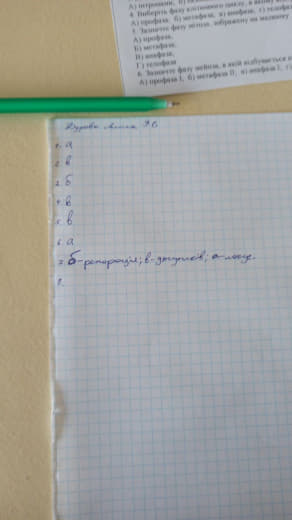 А) інтронами,
4. Виберіть фазу клітинного циклу, в якому
А) профаза, б) метафаза; в) анафаза; г) телофаза
5. Зазначте фазу мітозу, зображену на малюнку
А) профаза,
Б) метафаза;
В) анафаза;
Г) телофаза
6. Зазначте фазу мейозу, в якій відбувається
А) профаза I, б) метафаза II, в) анафаза I,
1. а
2. в
3. б
4. в
5. в
6. а
7. б-репарація; в- ; а-
8.